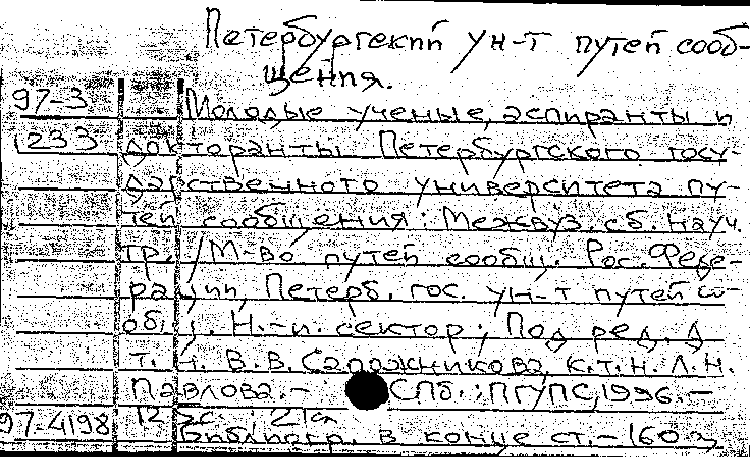 Петербургский ун-т путей сооб-
щения.
97-3 Молодые ученые, аспиранты и
1233 докторанты Петербургского госу-
дарственного университета пу-
тей сообщения: Межвуз. сб. науч.
тр. / М-во путей сообщ. Рос. Феде-
рации, Петерб. гос. ун-т путей со-
общ. Н.-и. сектор; Под ред. д.
т. н. В.В. Сапожникова, к.т.н. Л.Н.
Павлова. - СПб.: ПГУПС, 1996. -
97-4198 12 с.; 21
Библиогр. в конце ст. - 160